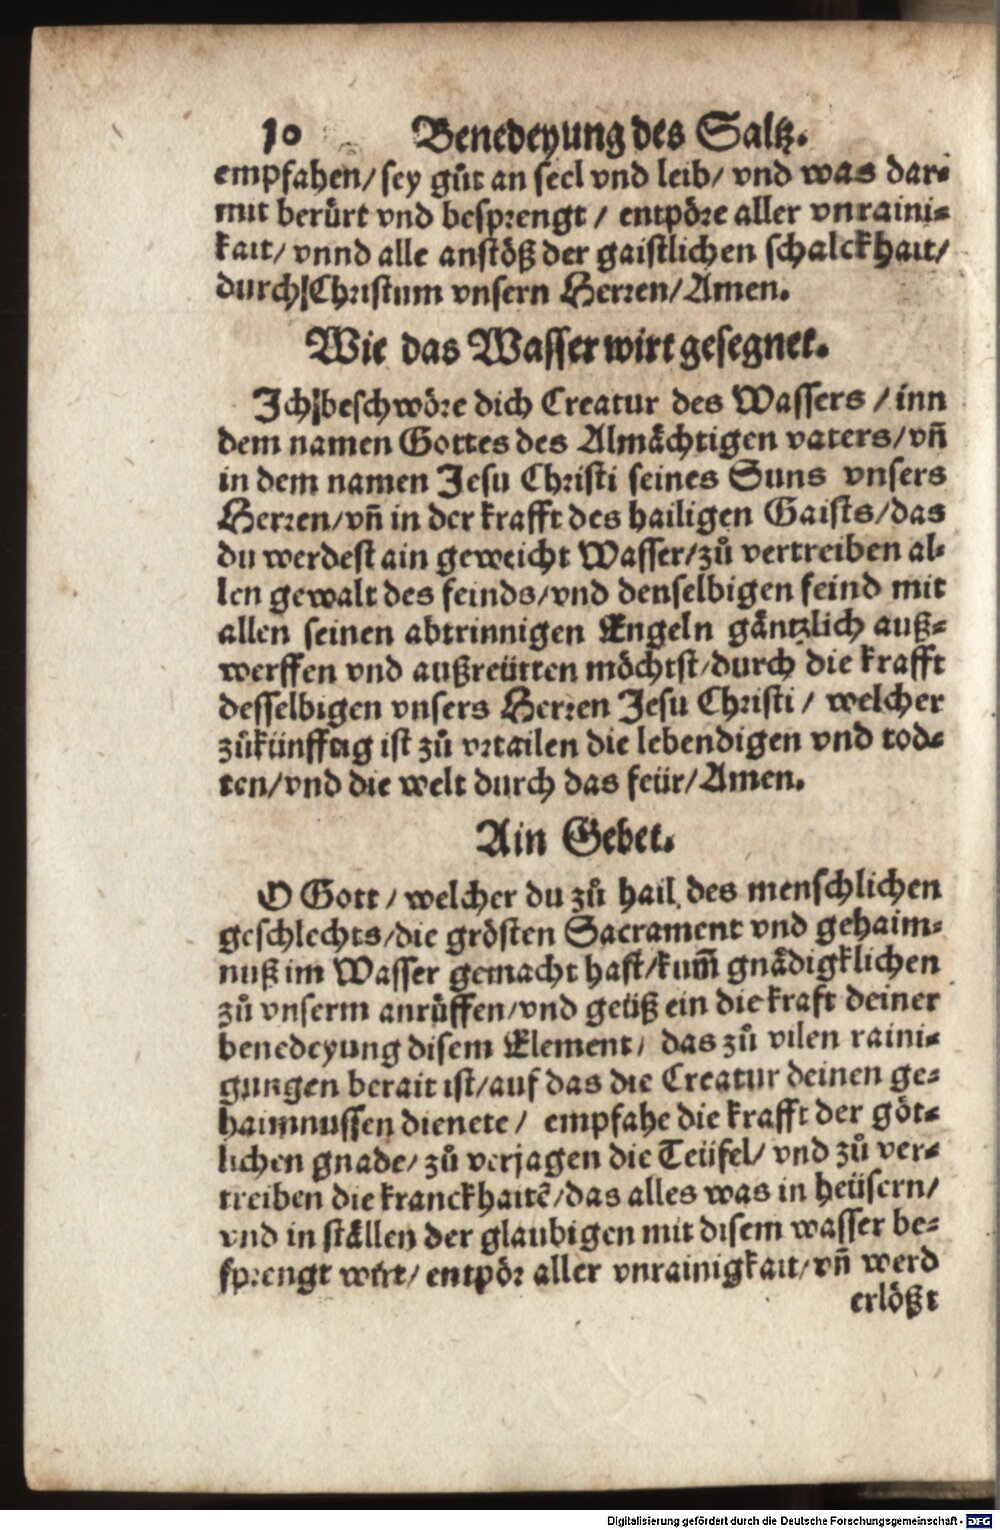 10 Benedeyung des Saltz.
empfahen/ sey gůt an seel vnd leib/ vnd was dar⸗
mit berürt vnd besprengt / entpöre aller vnraini⸗
kait/ vnnd alle anstöß der gaistlichen schalckhait/
durch Christum vnsern Herren/ Amen.
Wie das Wasser wirt gesegnet.
Ich beschwöre dich Creatur des Wassers / inn
dem namen Gottes des Almächtigen vaters/ vñ
in dem namen Jesu Christi seines Suns vnsers
Herren/ vñ in der krafft des hailigen Gaists/ das
du werdest ain geweicht Wasser/ zů vertreiben al⸗
len gewalt des feinds/ vnd denselbigen feind mit
allen seinen abtrinnigen Engeln gäntzlich auß⸗
werffen vnd außreütten möchtst/ durch die krafft
desselbigen vnsers Herren Jesu Christi / welcher
zůkünfftig ist zů vrtailen die lebendigen vnd tod⸗
ten/ vnd die welt durch das feür/ Amen.
Ain Gebet.
O Gott / welcher du zů hail des menschlichen
geschlechts/ die grösten Sacrament vnd gehaim⸗
nuß im Wasser gemacht hast/ kum̃ gnädigklichen
zů vnserm anrüffen/ vnd geüß ein die kraft deiner
benedeyung disem Element/ das zů vilen raini⸗
gungen berait ist/ auf das die Creatur deinen ge⸗
haimnussen dienete / empfahe die krafft der göt⸗
lichen gnade/ zů verjagen die Teüfel/ vnd zů ver⸗
treiben die kranckhaitẽ/ das alles was in heüsern/
vnd in ställen der glaubigen mit disem wasser be⸗
sprengt wirt/ entpör aller vnrainigkait/ vñ werd
erlößt
Digitalisierung gefördert durch die Deutsche Forschungsgemeinschaft - DFG